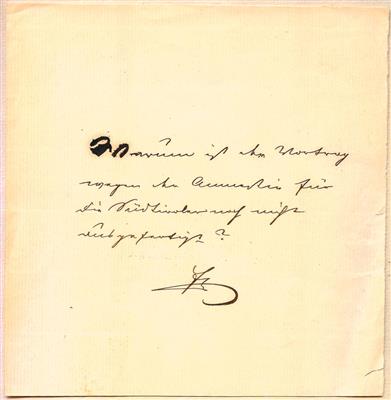 Warum ist der Vortrag
wegen der Amnestie für
die Südtiroler noch nicht
ausgefertigt?